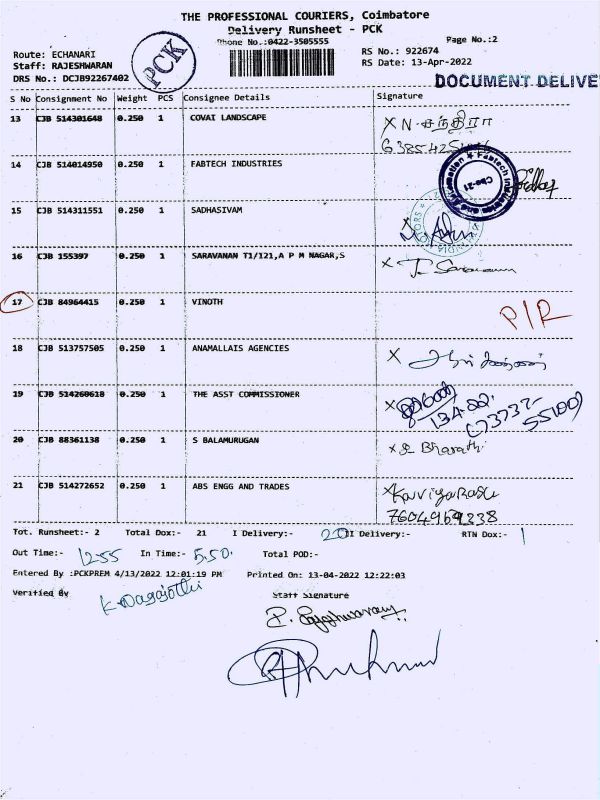 THE PROFESSIONAL COURIERS, Coimbatore
Delivery Runsheet - PCK
Phone No.:0422-3505555
Page No.:2
PCK
Route: ECHANARI
Staff: RAJESHWARAN
DRS No.: DCJB92267402
RS No.: 922674
RS Date: 13-Apr-2022
DOCUMENT DELIVE
S No Consignment No Weight PCS Consignee Details Signature
13 CJB 514301648 0.250 1 COVAI LANDSCAPE X N. சந்திரா
14 CJB 514014950 0.250 1 FABTECH INDUSTRIES
15 CJB 514311551 0.250 1 SADHASIVAM
16 CJB 155397 0.250 1 SARAVANAN T1/121,A P M NAGAR,S X
17 CJB 84964415 0.250 1 VINOTH P/R
18 CJB 513757505 0.250 1 ANAMALLAIS AGENCIES X
19 CJB 514260618 0.250 1 THE ASST COMMISSIONER X
20 CJB 88361138 0.250 1 S BALAMURUGAN X Bharathi
21 CJB 514272652 0.250 1 ABS ENGG AND TRADES X
Tot. Runsheet:- 2 Total Dox:- 21 I Delivery:- 20 II Delivery:- RTN Dox:- 1
Out Time:- 12.55 In Time:- 5.50. Total POD:-
Entered By :PCKPREM 4/13/2022 12:01:19 PM Printed On: 13-04-2022 12:22:03
Verified By Staff Signature